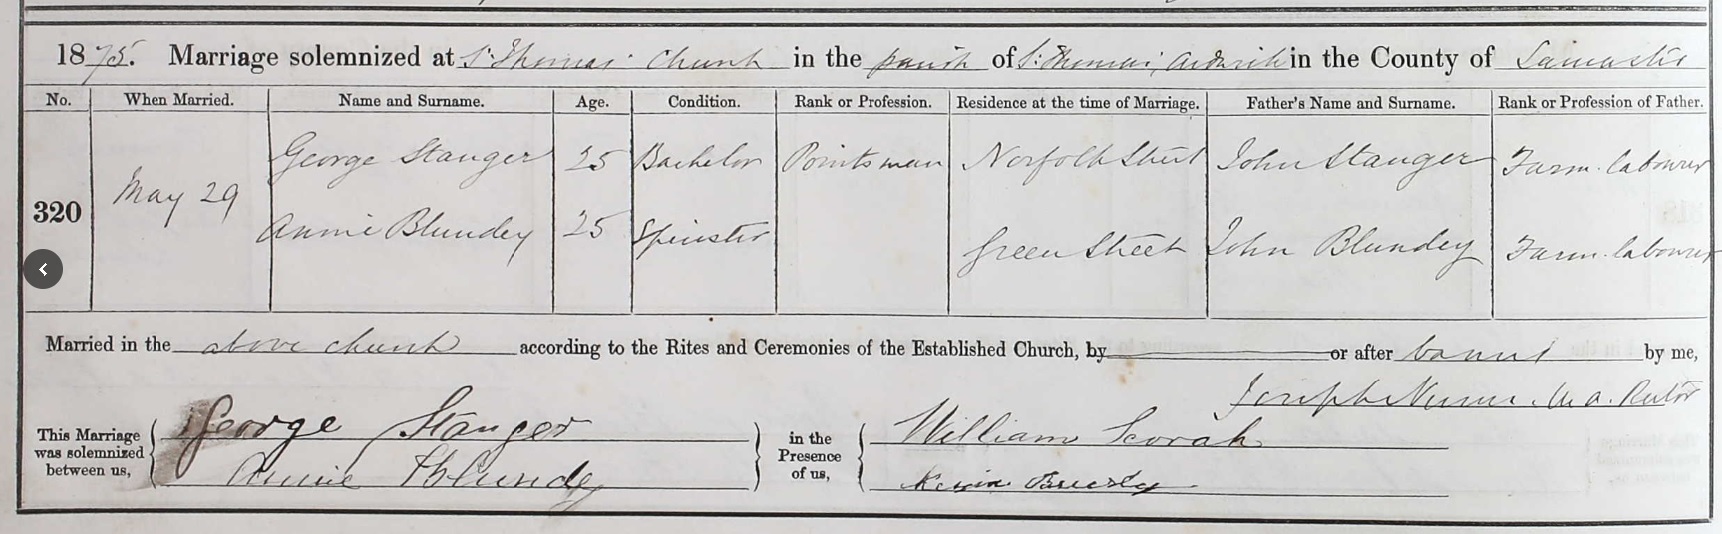 1875. Marriage solemnized at St Thomas' Church in the parish of St Thomas, Ardwick in the County of Lancaster
No. When Married. Name and Surname. Age. Condition. Rank or Profession. Residence at the time of Marriage. Father's Name and Surname. Rank or Profession of Father.
George Stanger 25 Bachelor Pointsman Norfolk Street John Stanger Farm labourer
320 May 29
Annie Blundey 25 Spinster Green Street John Blundey Farm labourer
Married in the above church according to the Rites and Ceremonies of the Established Church, by or after banns by me,
Joseph M.A. Rector
George Stanger William Scorah
This Marriage was solemnized between us, in the Presence of us,
Annie Blundey